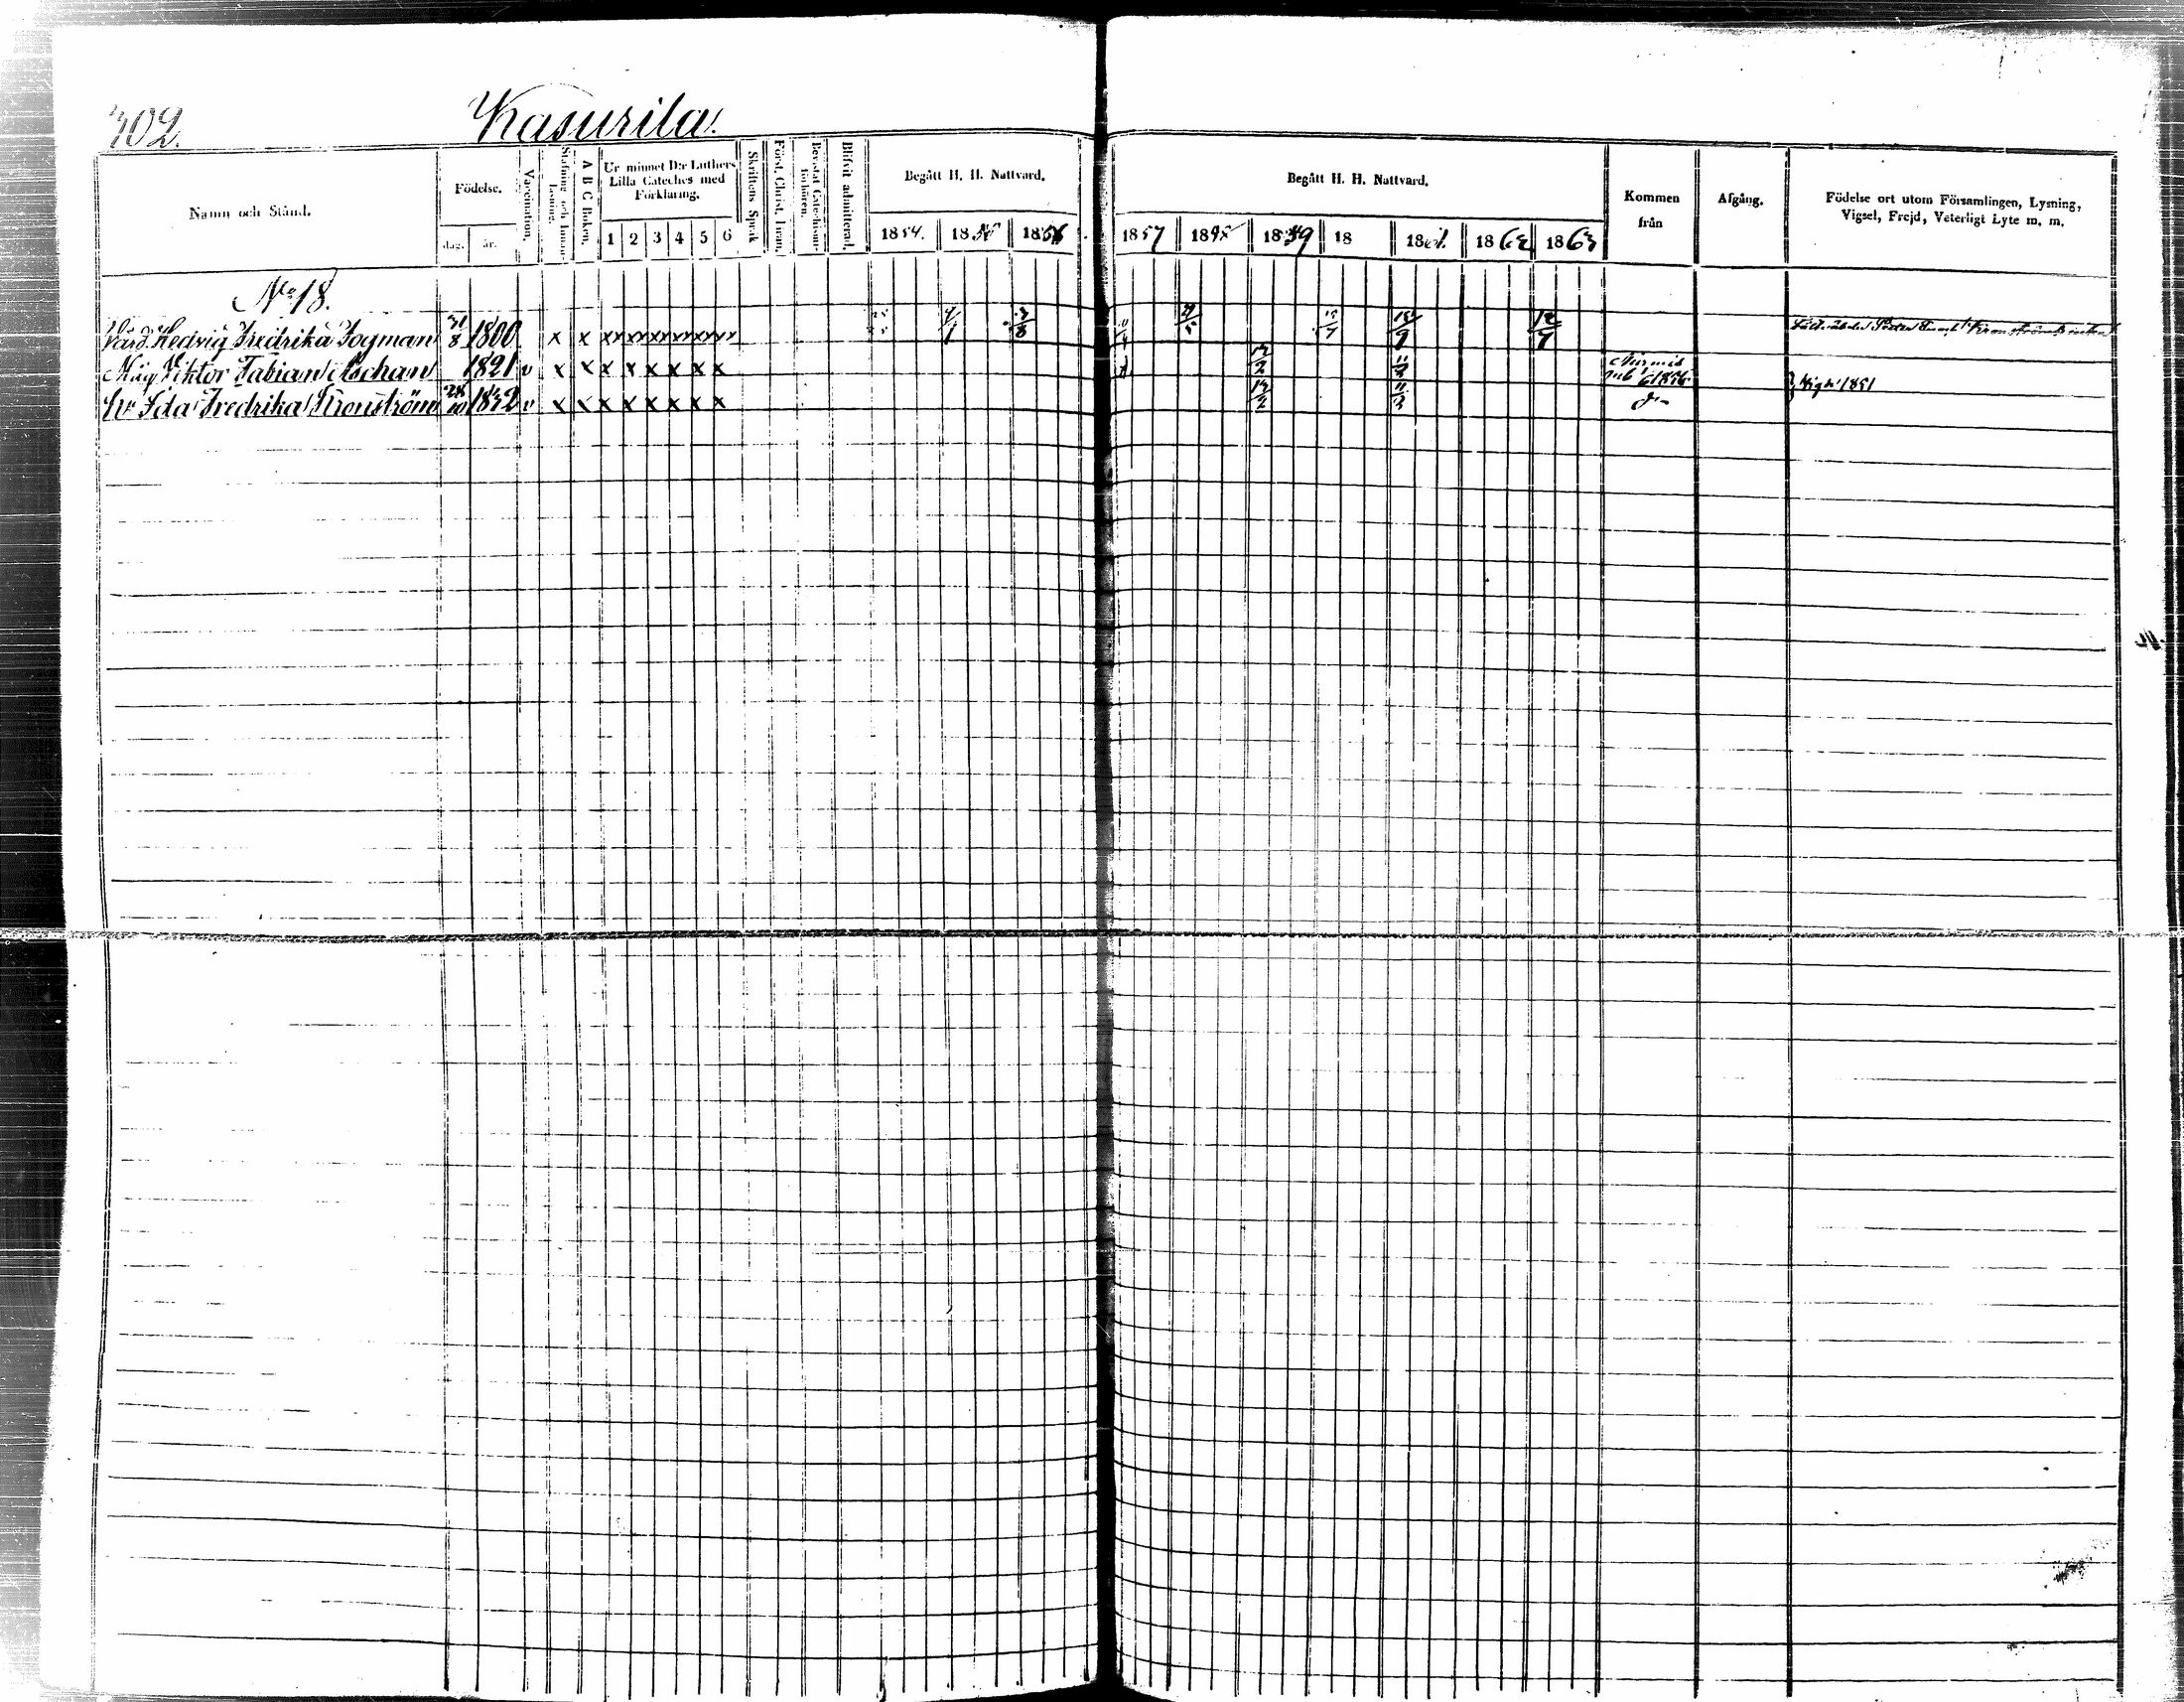 302.
Kasurila.
Namn och Stånd.
Födelse.
dag. år.
Vaccination.
Stafning och Innan-läsning.
A B C Boken.
Ur minnet D:r Luthers Lilla Cateches med Förklaring.
1 2 3 4 5 6
Skriftens Språk
Först. Christ. Läran.
Bevistat Catechismi förhören.
Blifvit admitterad.
Begått H. H. Nattvard.
1854. 1855 1856
Begått H. H. Nattvard.
1857 1858 1859 18 1861. 1862 1863
Kommen från
Afgång.
Födelse ort utom Församlingen, Lysning, Vigsel, Frejd, Veterligt Lyte m. m.
No 18.
Värd. Hedvig Fredrika Fogman 31/8 1800 x x xx xx xx xx xx xx 4/1 3/8 4/5 15/7 15/9 12/7
Måg Viktor Fabian 1821 v x x x x x x x x 13/2 11/3 Nurmis
Hu Ida Fredrika Kronström 24/10 1832 v x x x x x x x x 13/2 11/3 d:o Vigde 1851